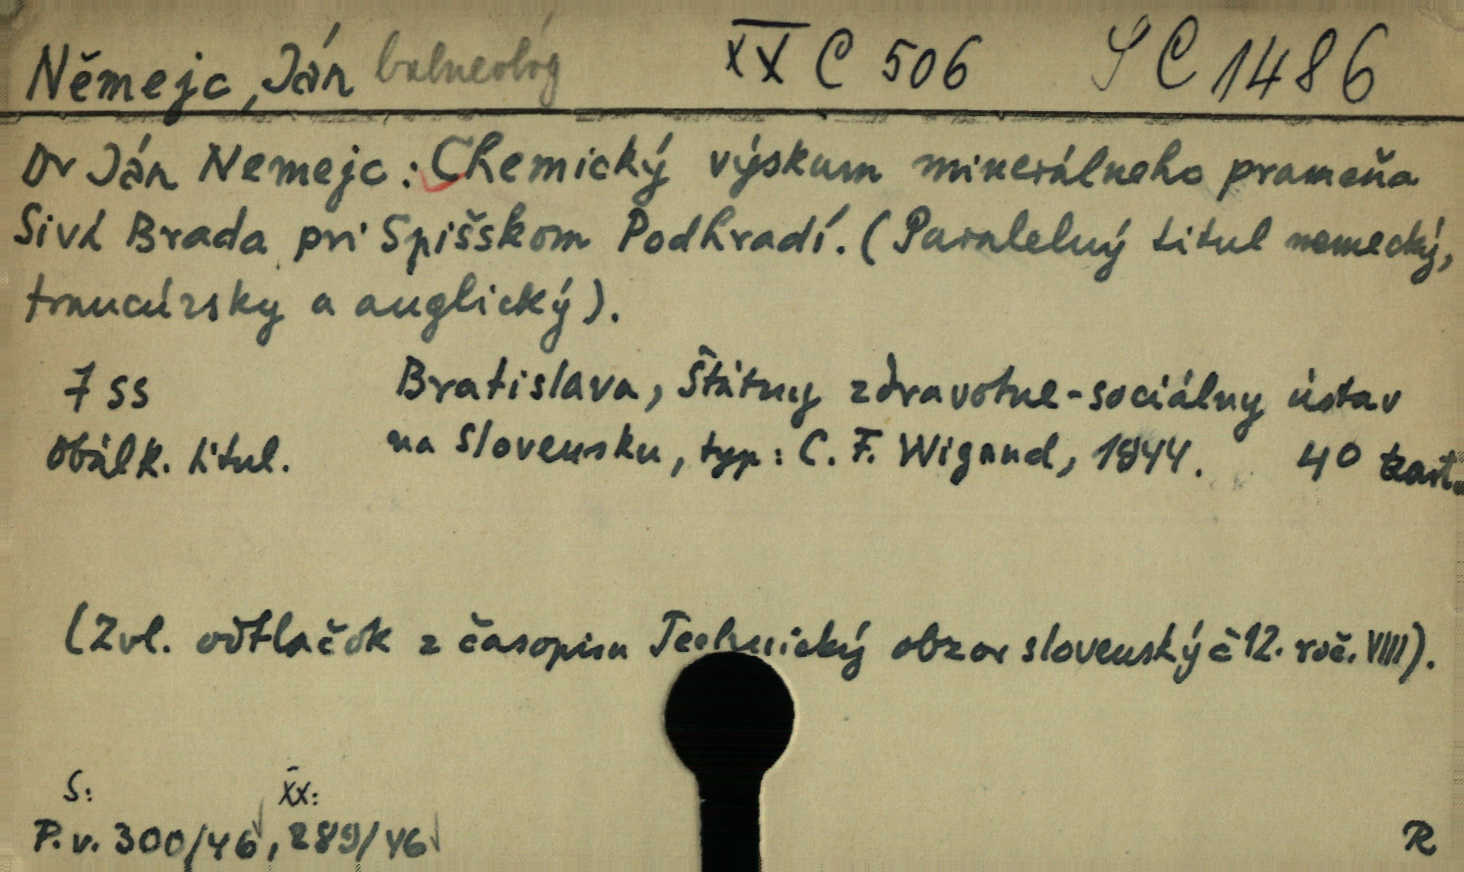 Němejc, Ján balneológ XX C 506 SC 1486
Dr Ján Nemejc: Chemický výskum minerálneho prameňa
Sivá Brada pri Spišskom Podhradí. (Paralelný titul nemecký,
francúzsky a anglický).
7 ss Bratislava, Štátny zdravotne-sociálny ústav
obálk. titul. na Slovensku, typ: C. F. Wigand, 1944. 4°
(Zvl. odtlačok z časopisu Technický obzor slovenský č 12. roč. VIII).
S: XX:
P.v. 300/46, 289/46
R